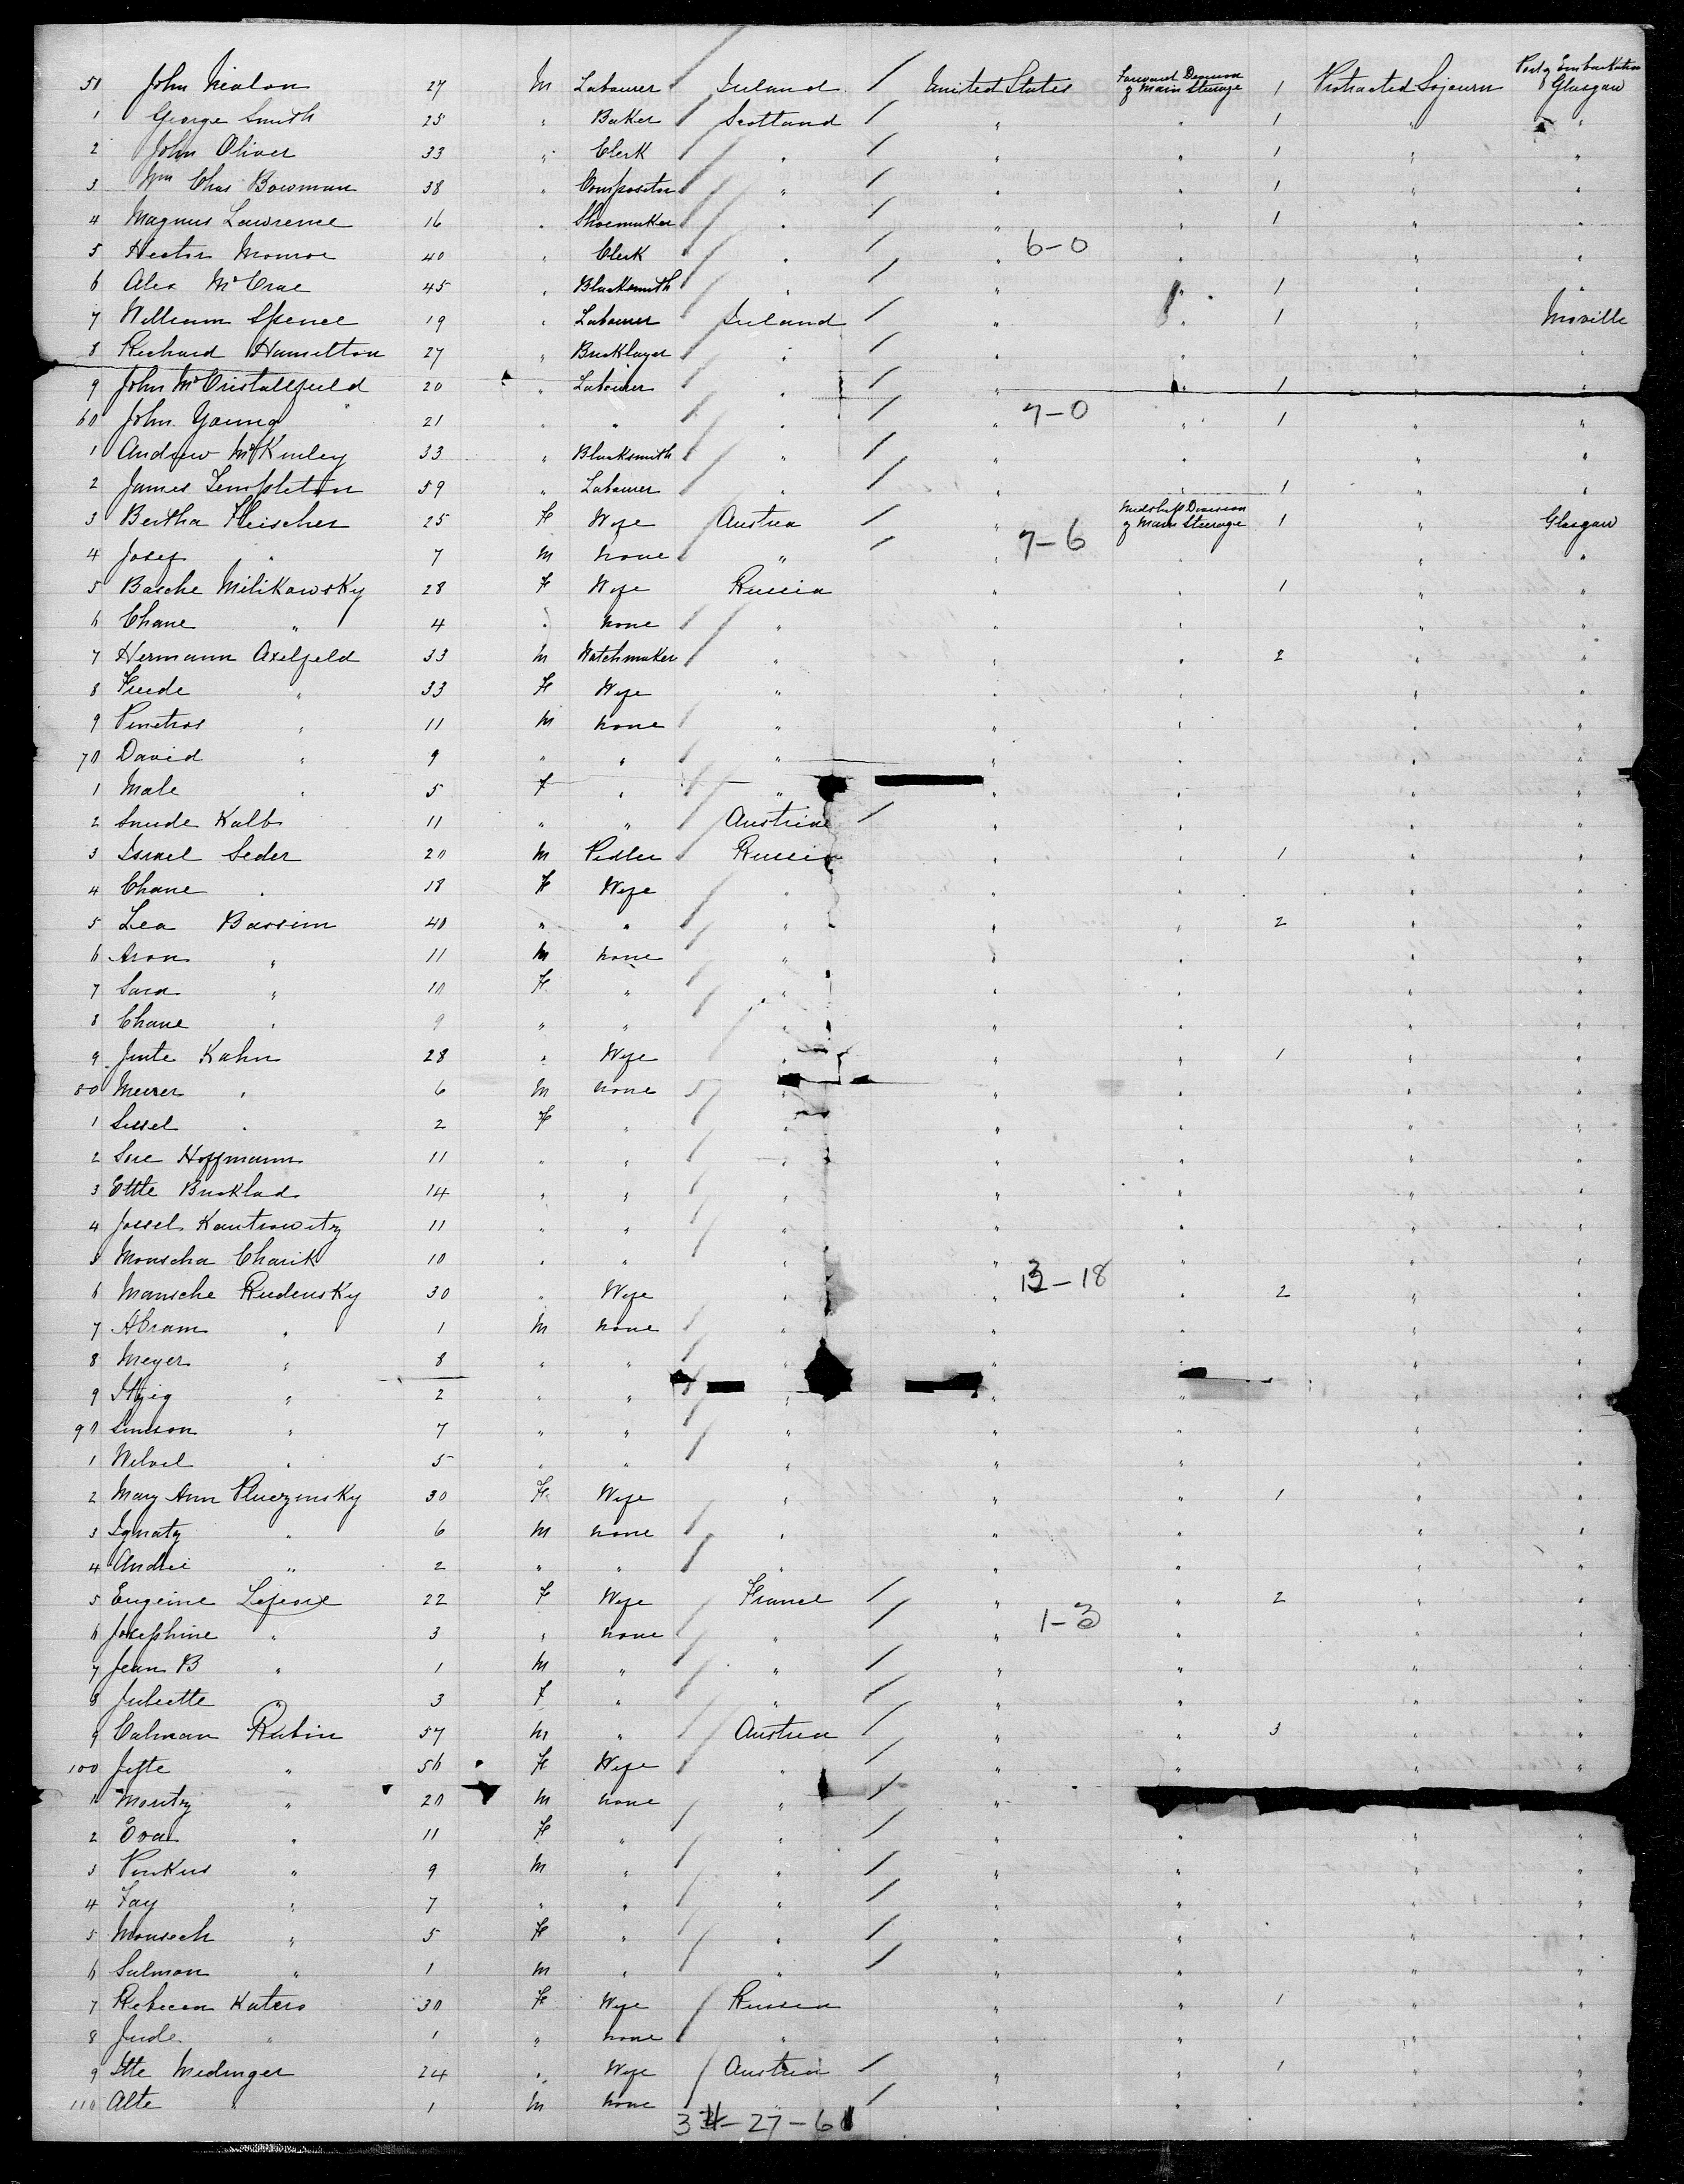 50 John Nealon 27 M Labourer Ireland / United States Forward Division of Main Steerage 1 Protracted Sojourn Port of Embarkation Glasgow
1 George Smith 25 " Baker Scotland / " " 1 " "
2 John Oliver 33 " Clerk " / " " 1 " "
3 Wm Chas Bowman 38 " Compositor " / " " 1 " "
4 Magnus Lawrence 16 " Shoemaker " / " " 1 " "
5 Hector Monroe 40 " Clerk " / " 6-0 " " "
6 Alex McCrae 45 " Blacksmith " / " " 1 " "
7 William Spence 19 " Labourer Ireland / " " 1 " Moville
8 Richard Hamilton 27 " Bricklayer " / " " " "
9 John McCristallfield 20 " Labourer " / " " 1 " "
60 John Young 21 " " " / " 7-0 " 1 " "
1 Andrew McKinley 33 " Blacksmith " / " " " "
2 James Templeton 59 " Labourer " / " " 1 " "
3 Bertha Fleischer 25 F Wife Austria / " Midship Division of Main Steerage 1 " Glasgow
4 Josef " 7 M none " / " 7-6 " " "
5 Basche Milikowsky 28 F Wife Russia " " 1 " "
6 Chane " 4 " none " " " " "
7 Hermann Axelfeld 33 M Watchmaker " " " 2 " "
8 Friede " 33 F Wife " " " " "
9 Pinetros " 11 M none " " " " "
70 David " 9 " " " " " " "
1 Male " 5 F " " " " " "
2 Smude Kalb 11 " " Austria / " " " "
3 Israel Seder 20 M Pedler Russia " " 1 " "
4 Chane " 18 F Wife " " " " "
5 Lea Bassim 40 " " " " " 2 " "
6 Aron " 11 M none " " " " "
7 Sara " 10 F " " " " " "
8 Chane " 9 " " " " " " "
9 Jinte Kahn 28 " Wife " " " 1 " "
80 Meirer " 6 M none " " " " "
1 Sissel " 2 F " " " " " "
2 Sore Hoffmann 11 " " " " " " "
3 Ettle Bucklad 14 " " " " " " "
4 Jossel Kantrowitz 11 " " " " " " "
5 Monscha Charik 10 " " " " " " "
6 Mansche Rudensky 30 " Wife " " 13-18 " 2 " "
7 Abram " 1 M none " " " " "
8 Meyer " 8 " " " " " " "
9 Itzig " 2 " " " " " " "
90 Simson " 7 " " " " " " "
1 Welvel " 5 " " " " " " "
2 Mary Ann Pluczynsky 30 F Wife " " " 1 " "
3 Ignatz " 6 M none " " " " "
4 Andrei " 2 " " " " " " "
5 Eugeine Lefevre 22 F Wife France / " " 2 " "
6 Josephine " 3 " none " / " 1-3 " " "
7 Jean B " 1 M " " / " " " "
8 Juliette " 3 F " " / " " " "
9 Calman Rubin 57 M " Austria / " " 3 " "
100 Jitte " 56 F Wife " / " " " "
1 Moritz " 20 M none " / "
2 Eva " 11 F " " / " " " "
3 Pinkus " 9 M " " / " " " "
4 Fay " 7 " " " / " " " "
5 Monsech " 5 F " " / " " " "
6 Salman " 1 M " " / " " " "
7 Rebecca Katers 30 F Wife Russia " " 1 " "
8 Jude " 1 " none " " " " "
9 Itte Medinger 24 " Wife Austria / " " 1 " "
110 Alte " 1 M none " / " " " "
34-27-61